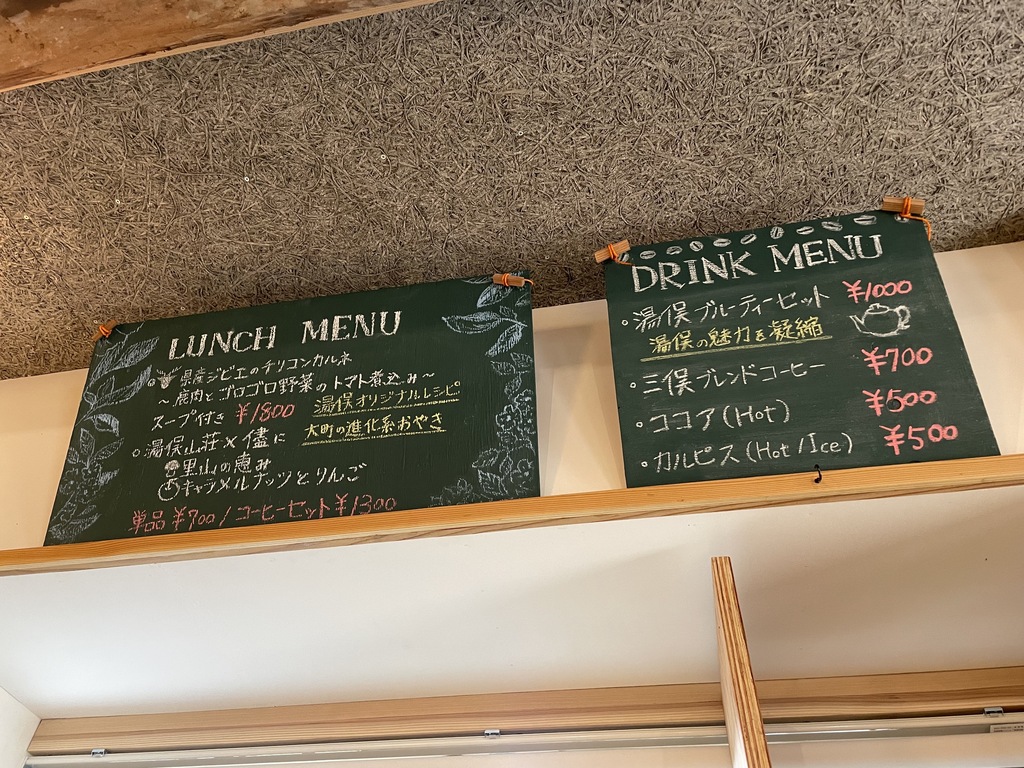 LUNCH MENU
・県産ジビエのチリコンカルネ
～鹿肉とゴロゴロ野菜のトマト煮込み～
スープ付き ¥1800 湯俣オリジナルレシピ
・湯俣山荘×儘に 大町の進化系おやき
里山の恵み
キャラメルナッツとりんご
単品 ¥700 / コーヒーセット ¥1300
DRINK MENU
・湯俣ブルーティーセット ¥1000
湯俣の魅力を凝縮
・三俣ブレンドコーヒー ¥700
・ココア(Hot) ¥500
・カルピス(Hot/Ice) ¥500